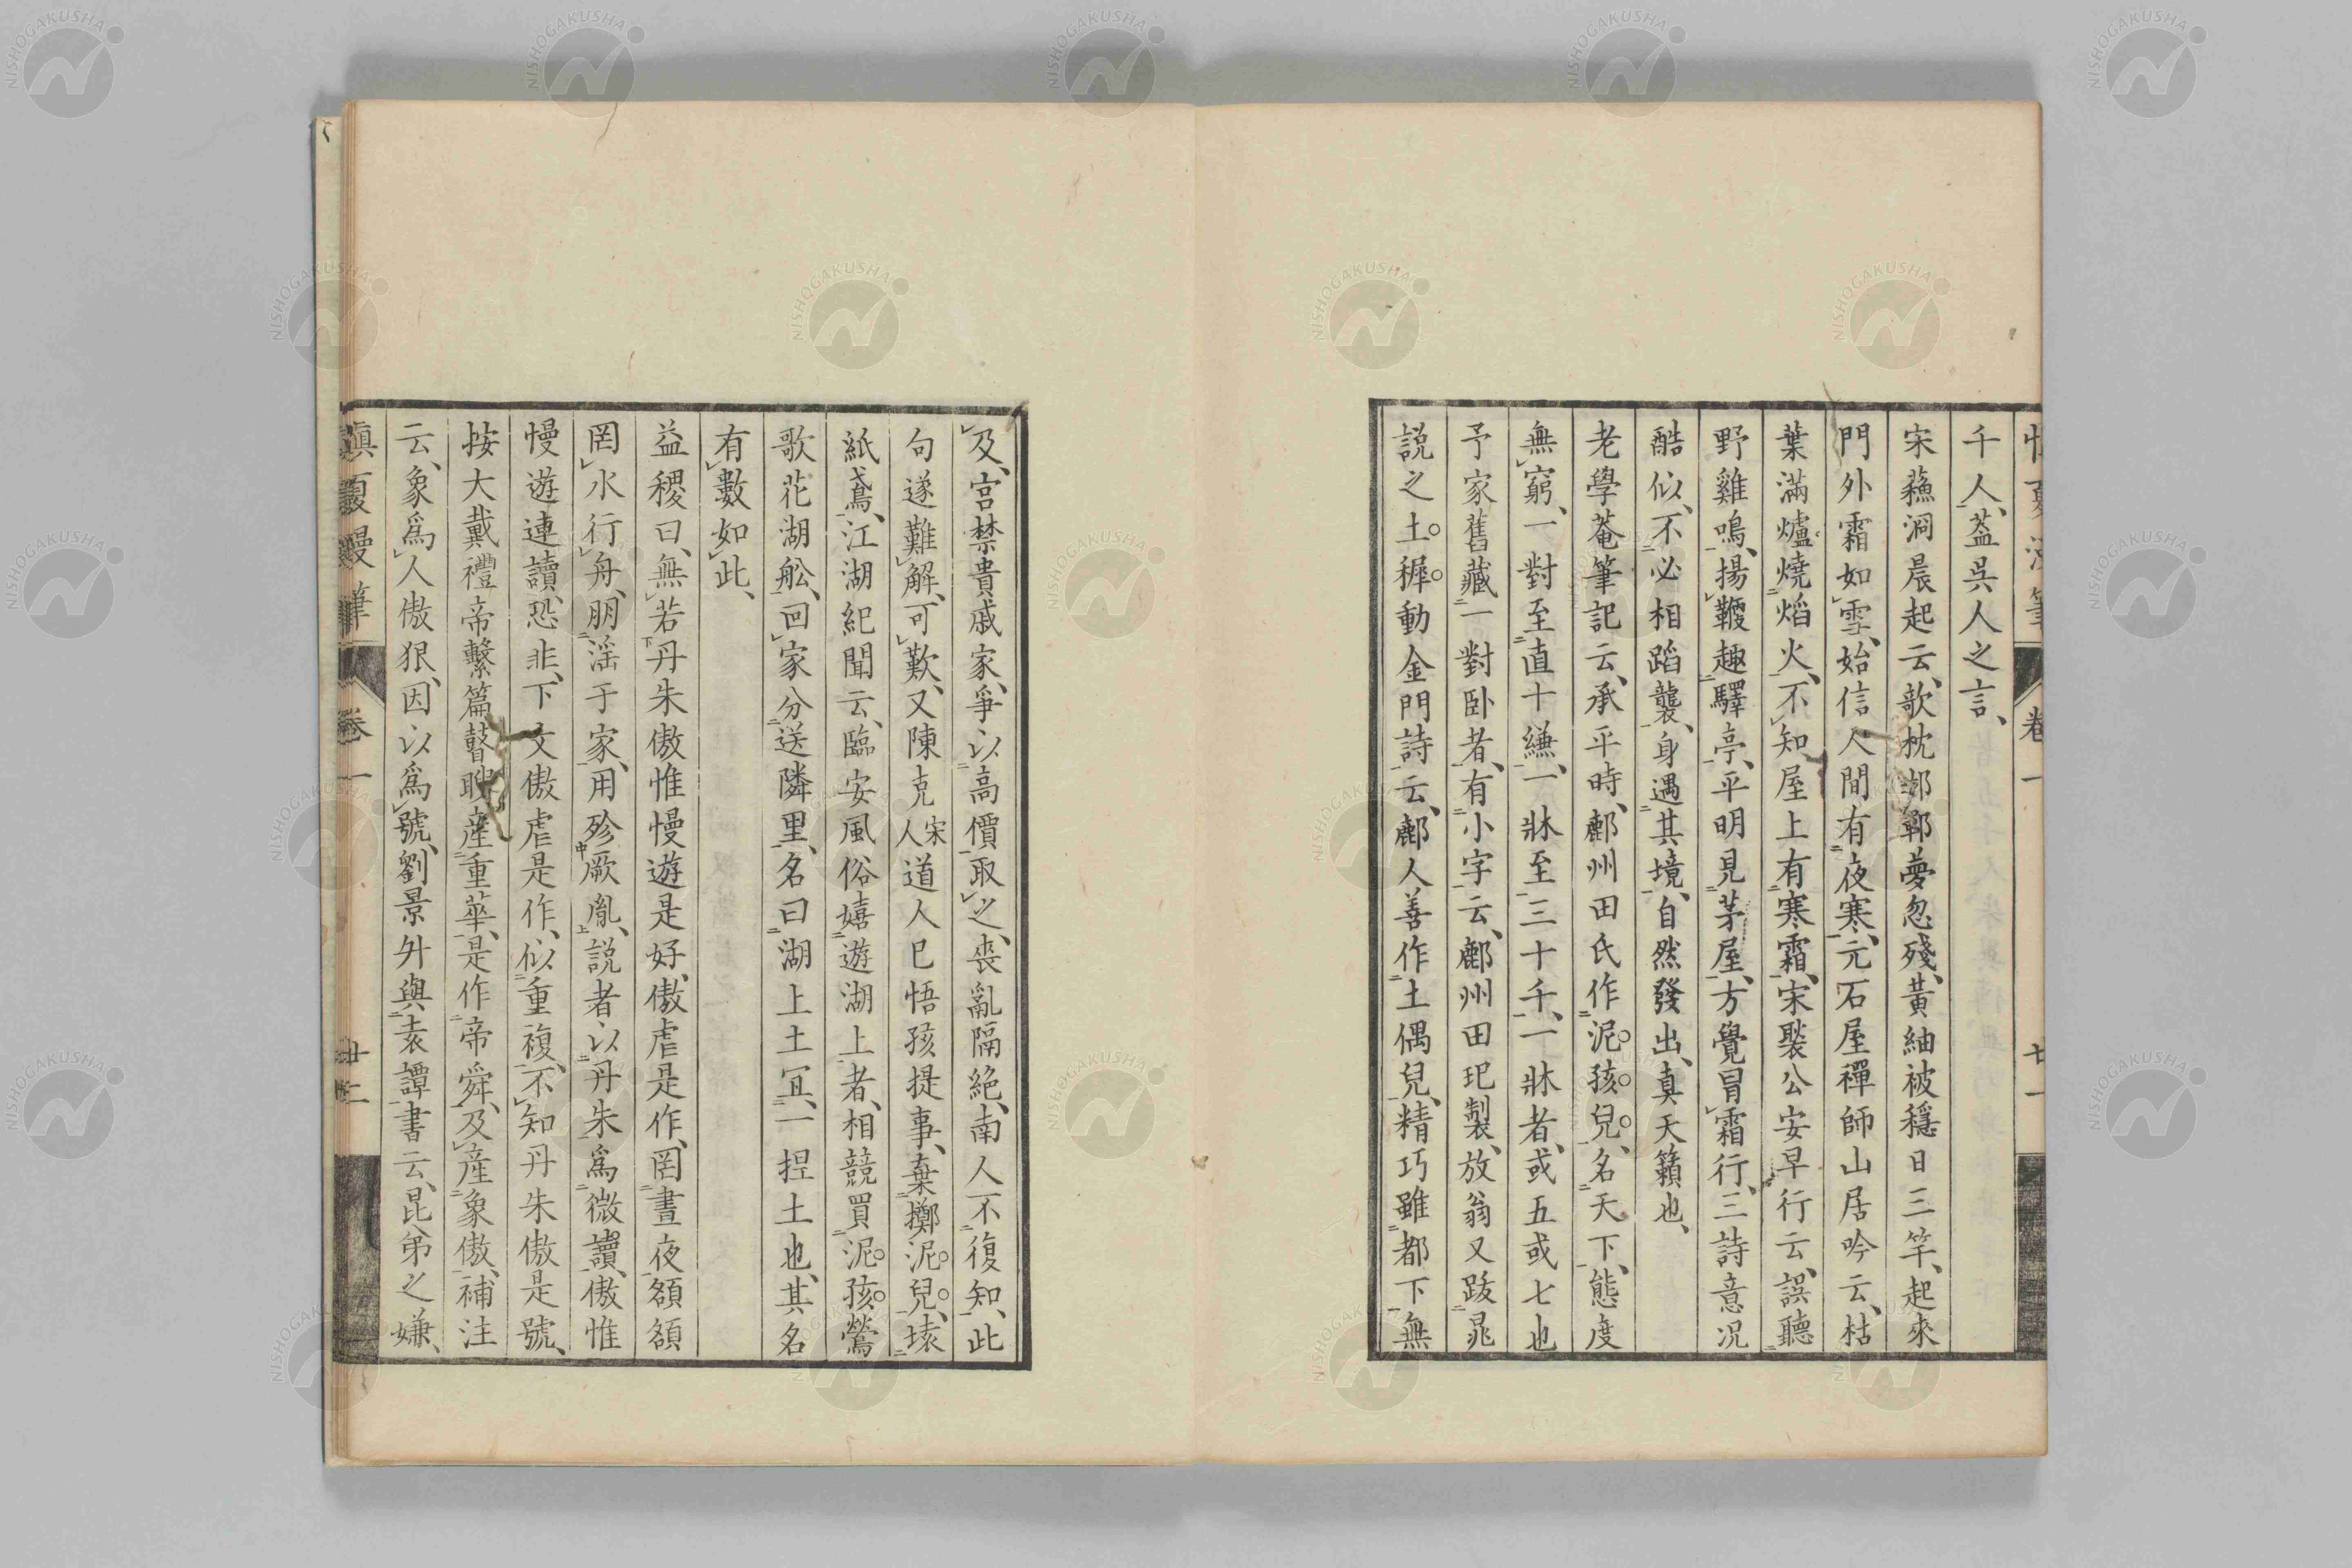 千人、蓋吳人之言、
宋蘓泂晨起云、歌枕邯鄲夢忽殘、黃紬被穩日三竿、起來
門外霜如雪、始信人間有夜寒、元石屋禪師山居吟云、枯
葉滿爐燒焰火、不知屋上有寒霜、宋裴公安早行云、誤聽
野雞鳴、揚鞭趣驛亭、平明見茅屋、方覺冒霜行、三詩意況
酷似、不必相蹈襲、身遇其境、自然發出、真天籟也、
老學菴筆記云、承平時、鄜州田氏作泥孩兒、名天下、態度
無窮、一對至直十縑、一牀至三十千、一牀者、或五或七也
予家舊藏一對臥者、有小字云、鄜州田玘製、放翁又跋晁
説之土稺動金門詩云、鄜人善作土偶兒、精巧雖都下無
及、宮禁貴戚家、爭以高價取之、喪亂隔絶、南人不復知、此
句遂難解、可歎、又陳克宋人道人已悟孩提事、棄擲泥兒、壊
紙鳶、江湖紀聞云、臨安風俗嬉遊湖上者、相競買泥孩鶯
歌花湖舩、回家分送隣里、名曰湖上土宜、一捏土也、其名
有數如此、
益稷曰、無若丹朱傲惟慢遊是好、傲虐是作、罔晝夜頟頟
罔水行舟、朋淫于家、用殄厥胤、説者以丹朱爲微讀、傲惟
慢遊連讀、恐非、下文傲虐是作、似重複、不知丹朱傲是號、
按大戴禮帝繫篇瞽瞍產重華、是作帝舜、及產象傲、補注
云、象爲人傲狠、因以爲號、劉景升與袁譚書云、昆弟之嫌、
慎夏漫筆 卷一 廿二
NISHOGAKUSHA